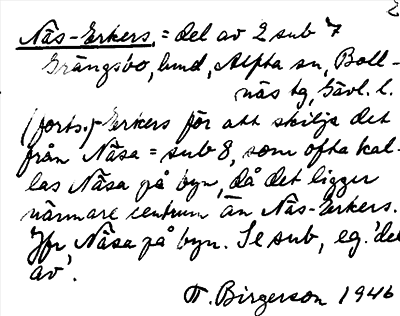 Näs-Erkers = del av 2 sub 7
Grängsbo, lund, Alfta sn, Boll-
näs tg, Gävl. l.
(forts.)-Erkers för att skilja det
från Nåsa = sub 8, som ofta kal-
las Nåsa på byn, då det ligger
närmare centrum än Näs-Erkers.
Jfr Nåsa på byn. Se sub, eg. 'del
av'.
T. Birgerson 1946